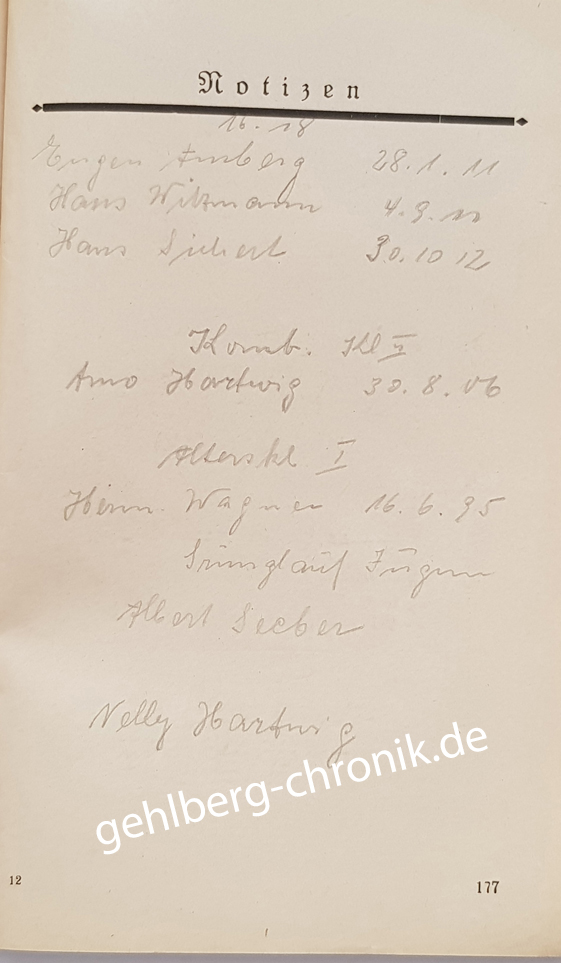 Notizen
16. 18
Eugen Amberg 28.1.11
Hans Witzmann 4.9.11
Hans Sichert 30.10 12
Komb. Kl II
Arno Hartwig 30.8.06
Alterskl. I
Herm. Wagner 16.6.95
Albert Seeber
Nelly Hartwig
gehlberg-chronik.de
12
177